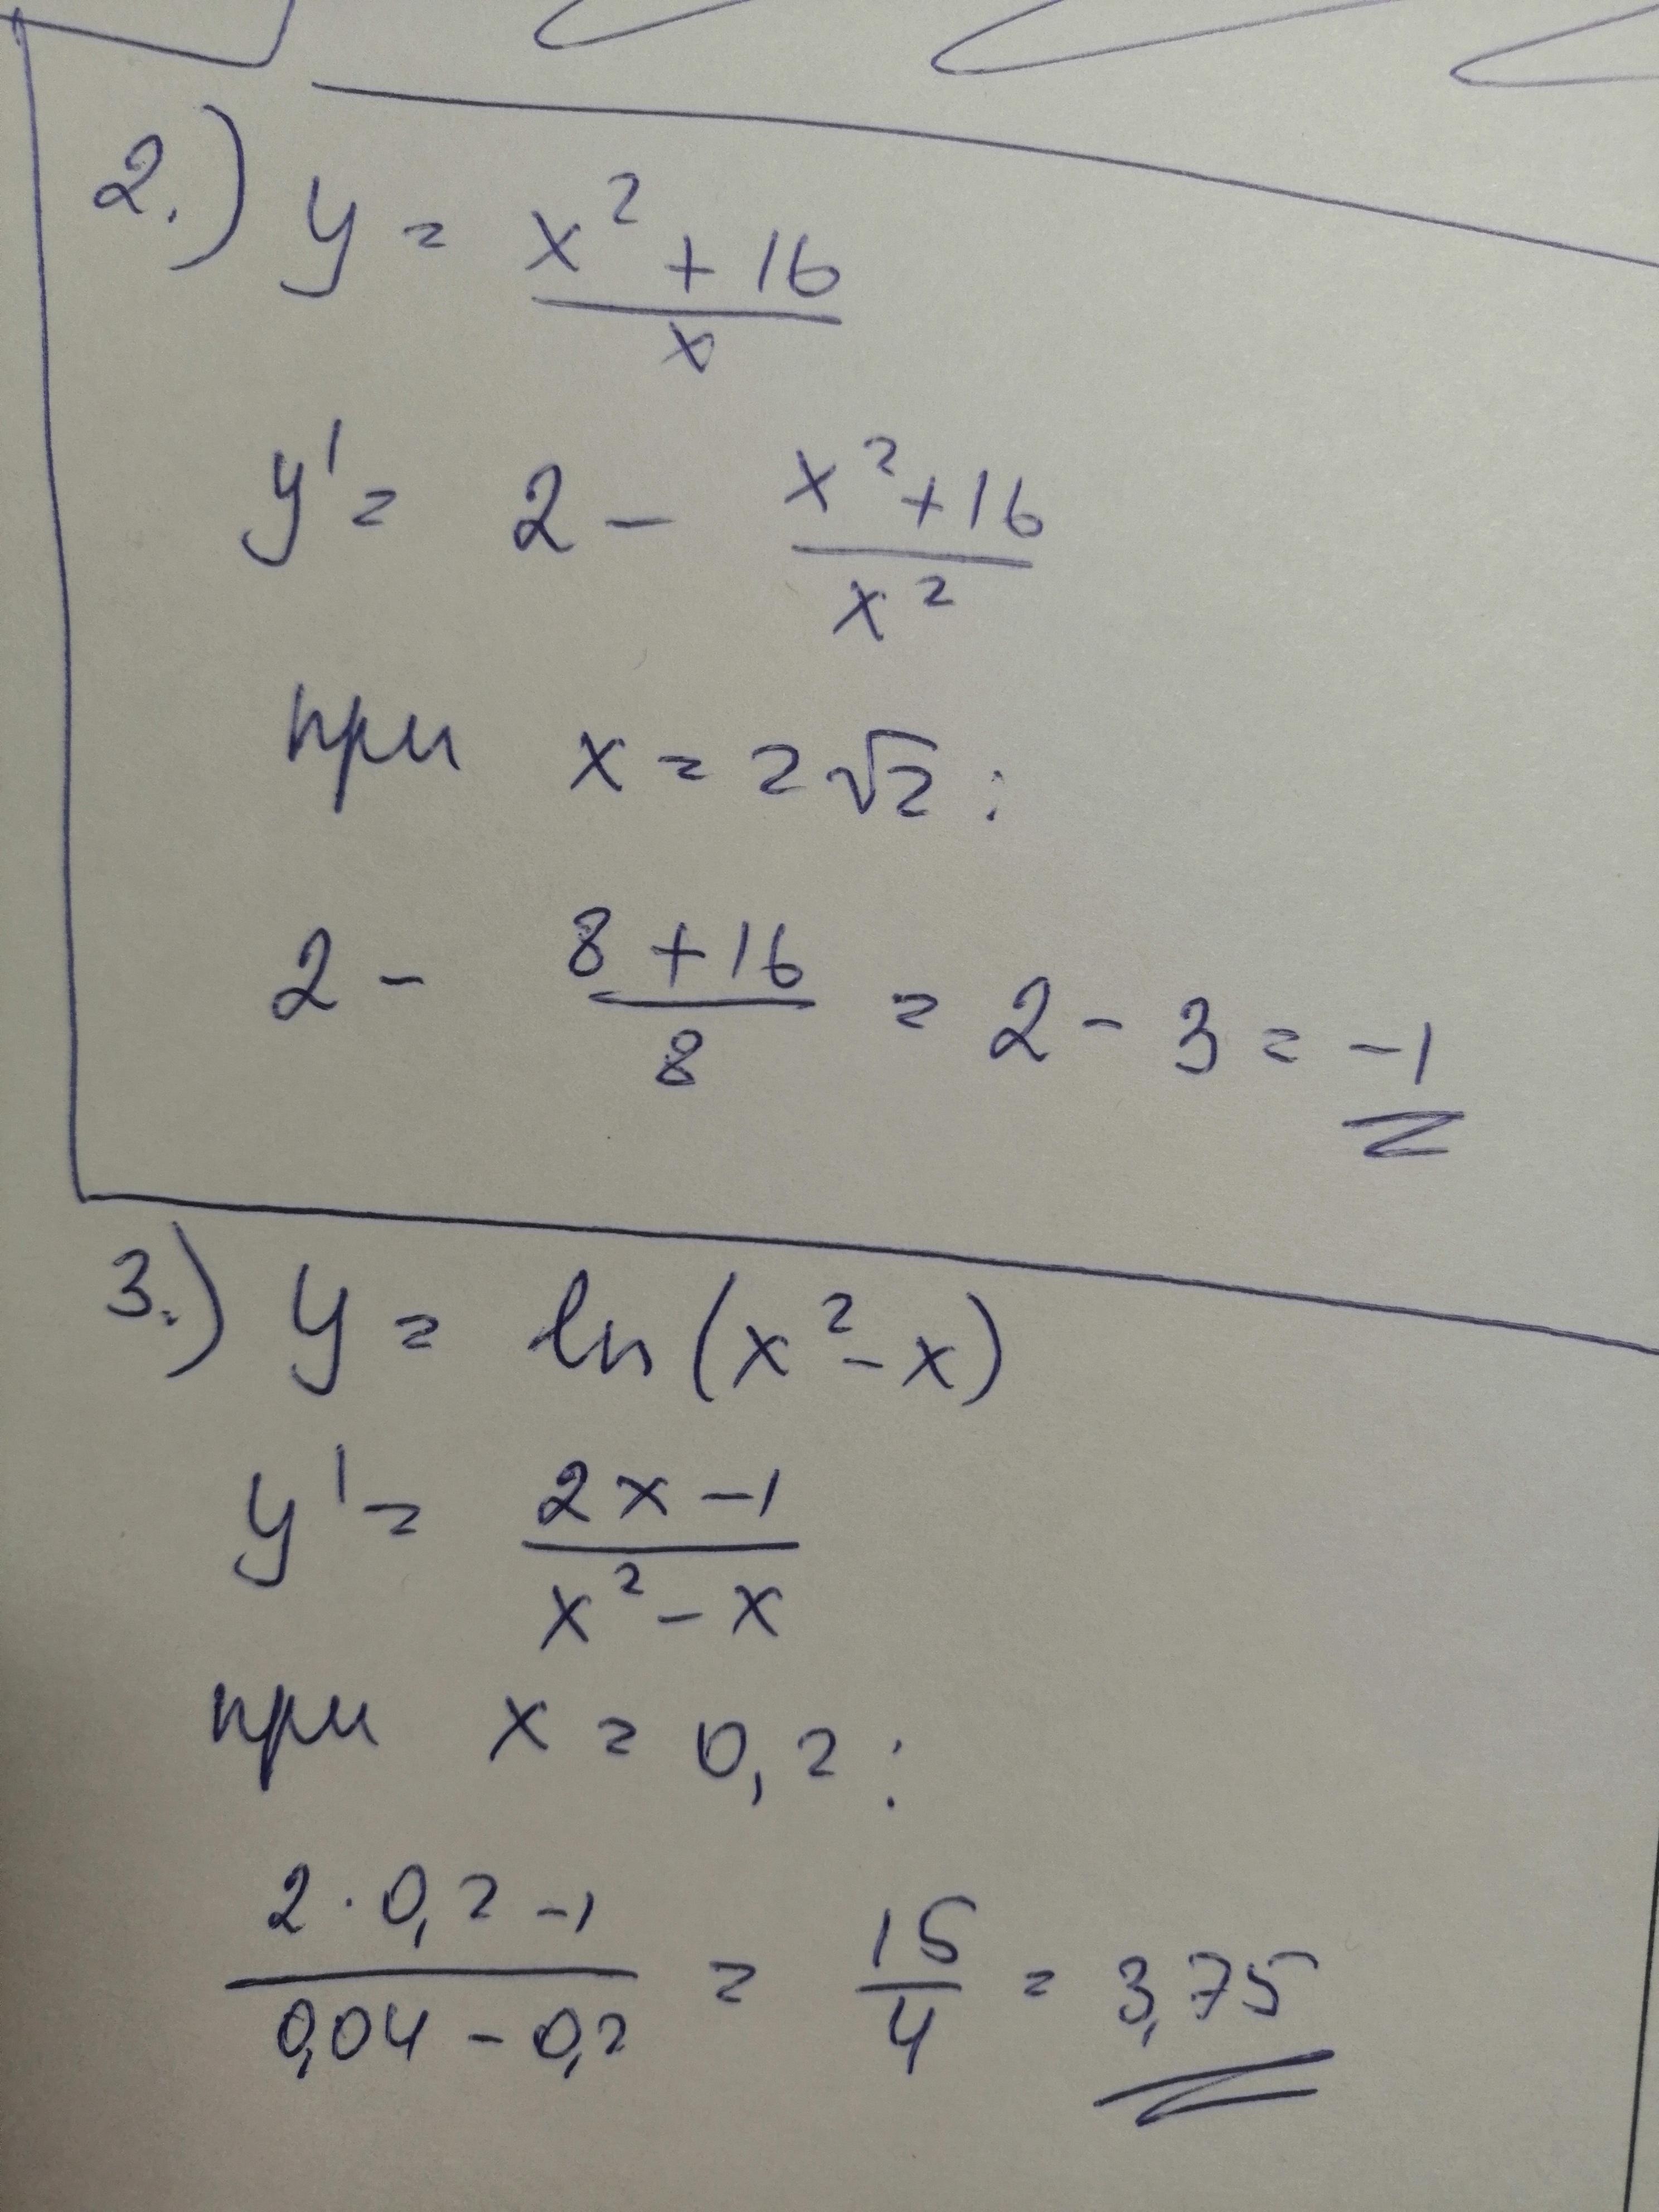 2.) y = (x² + 16)/x
y' = 2 - (x² + 16)/x²
при x = 2√2 :
2 - (8 + 16)/8 = 2 - 3 = -1
3.) y = ln(x² - x)
y' = (2x - 1)/(x² - x)
при x = 0,2 :
(2 · 0,2 - 1)/(0,04 - 0,2) = 15/4 = 3,75